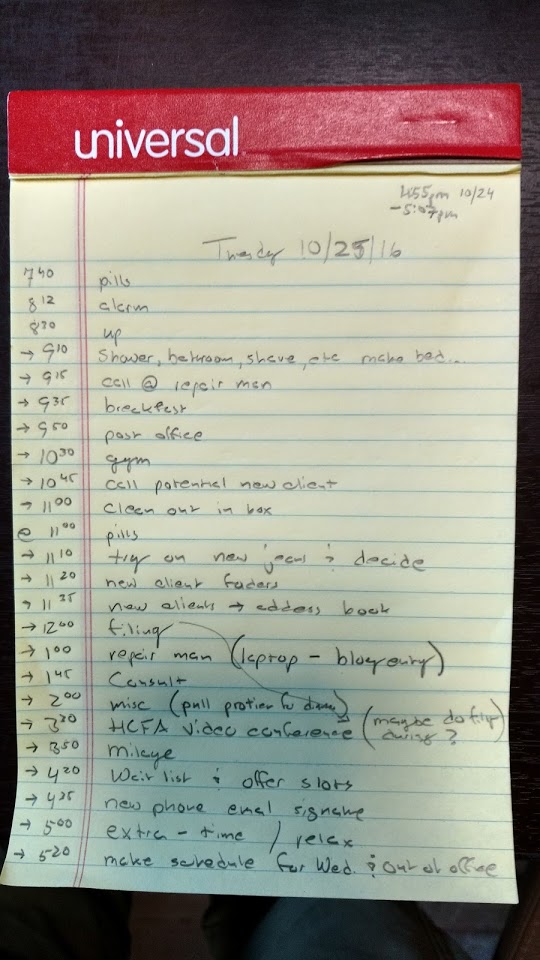 universal
4:55pm 10/24
- 5:07pm
Tuesday 10/25/16
740 pills
8 12 alarm
8 30 up
→ 9 10 Shower, bathroom, shave, etc make bed...
→ 9 15 call @ repair man
→ 9 35 breakfast
→ 9 50 post office
→ 10 30 gym
→ 10 45 call potential new client
→ 11 00 clean out in box
@ 11 00 pills
→ 11 10 try on new jeans & decide
→ 11 20 new client folders
→ 11 35 new clients → address book
→ 12 00 filing
→ 1 00 repair man (laptop - blog entry)
→ 1 45 Consult
→ 2 00 misc (pull protien for dinner)
→ 3 30 HCFA video conference (maybe do filing during?)
→ 3 50 Milage
→ 4 20 Wait list & offer slots
→ 4 35 new phone email signature
→ 5 00 extra - time / relax
→ 5 20 make schedule for Wed. & out of office